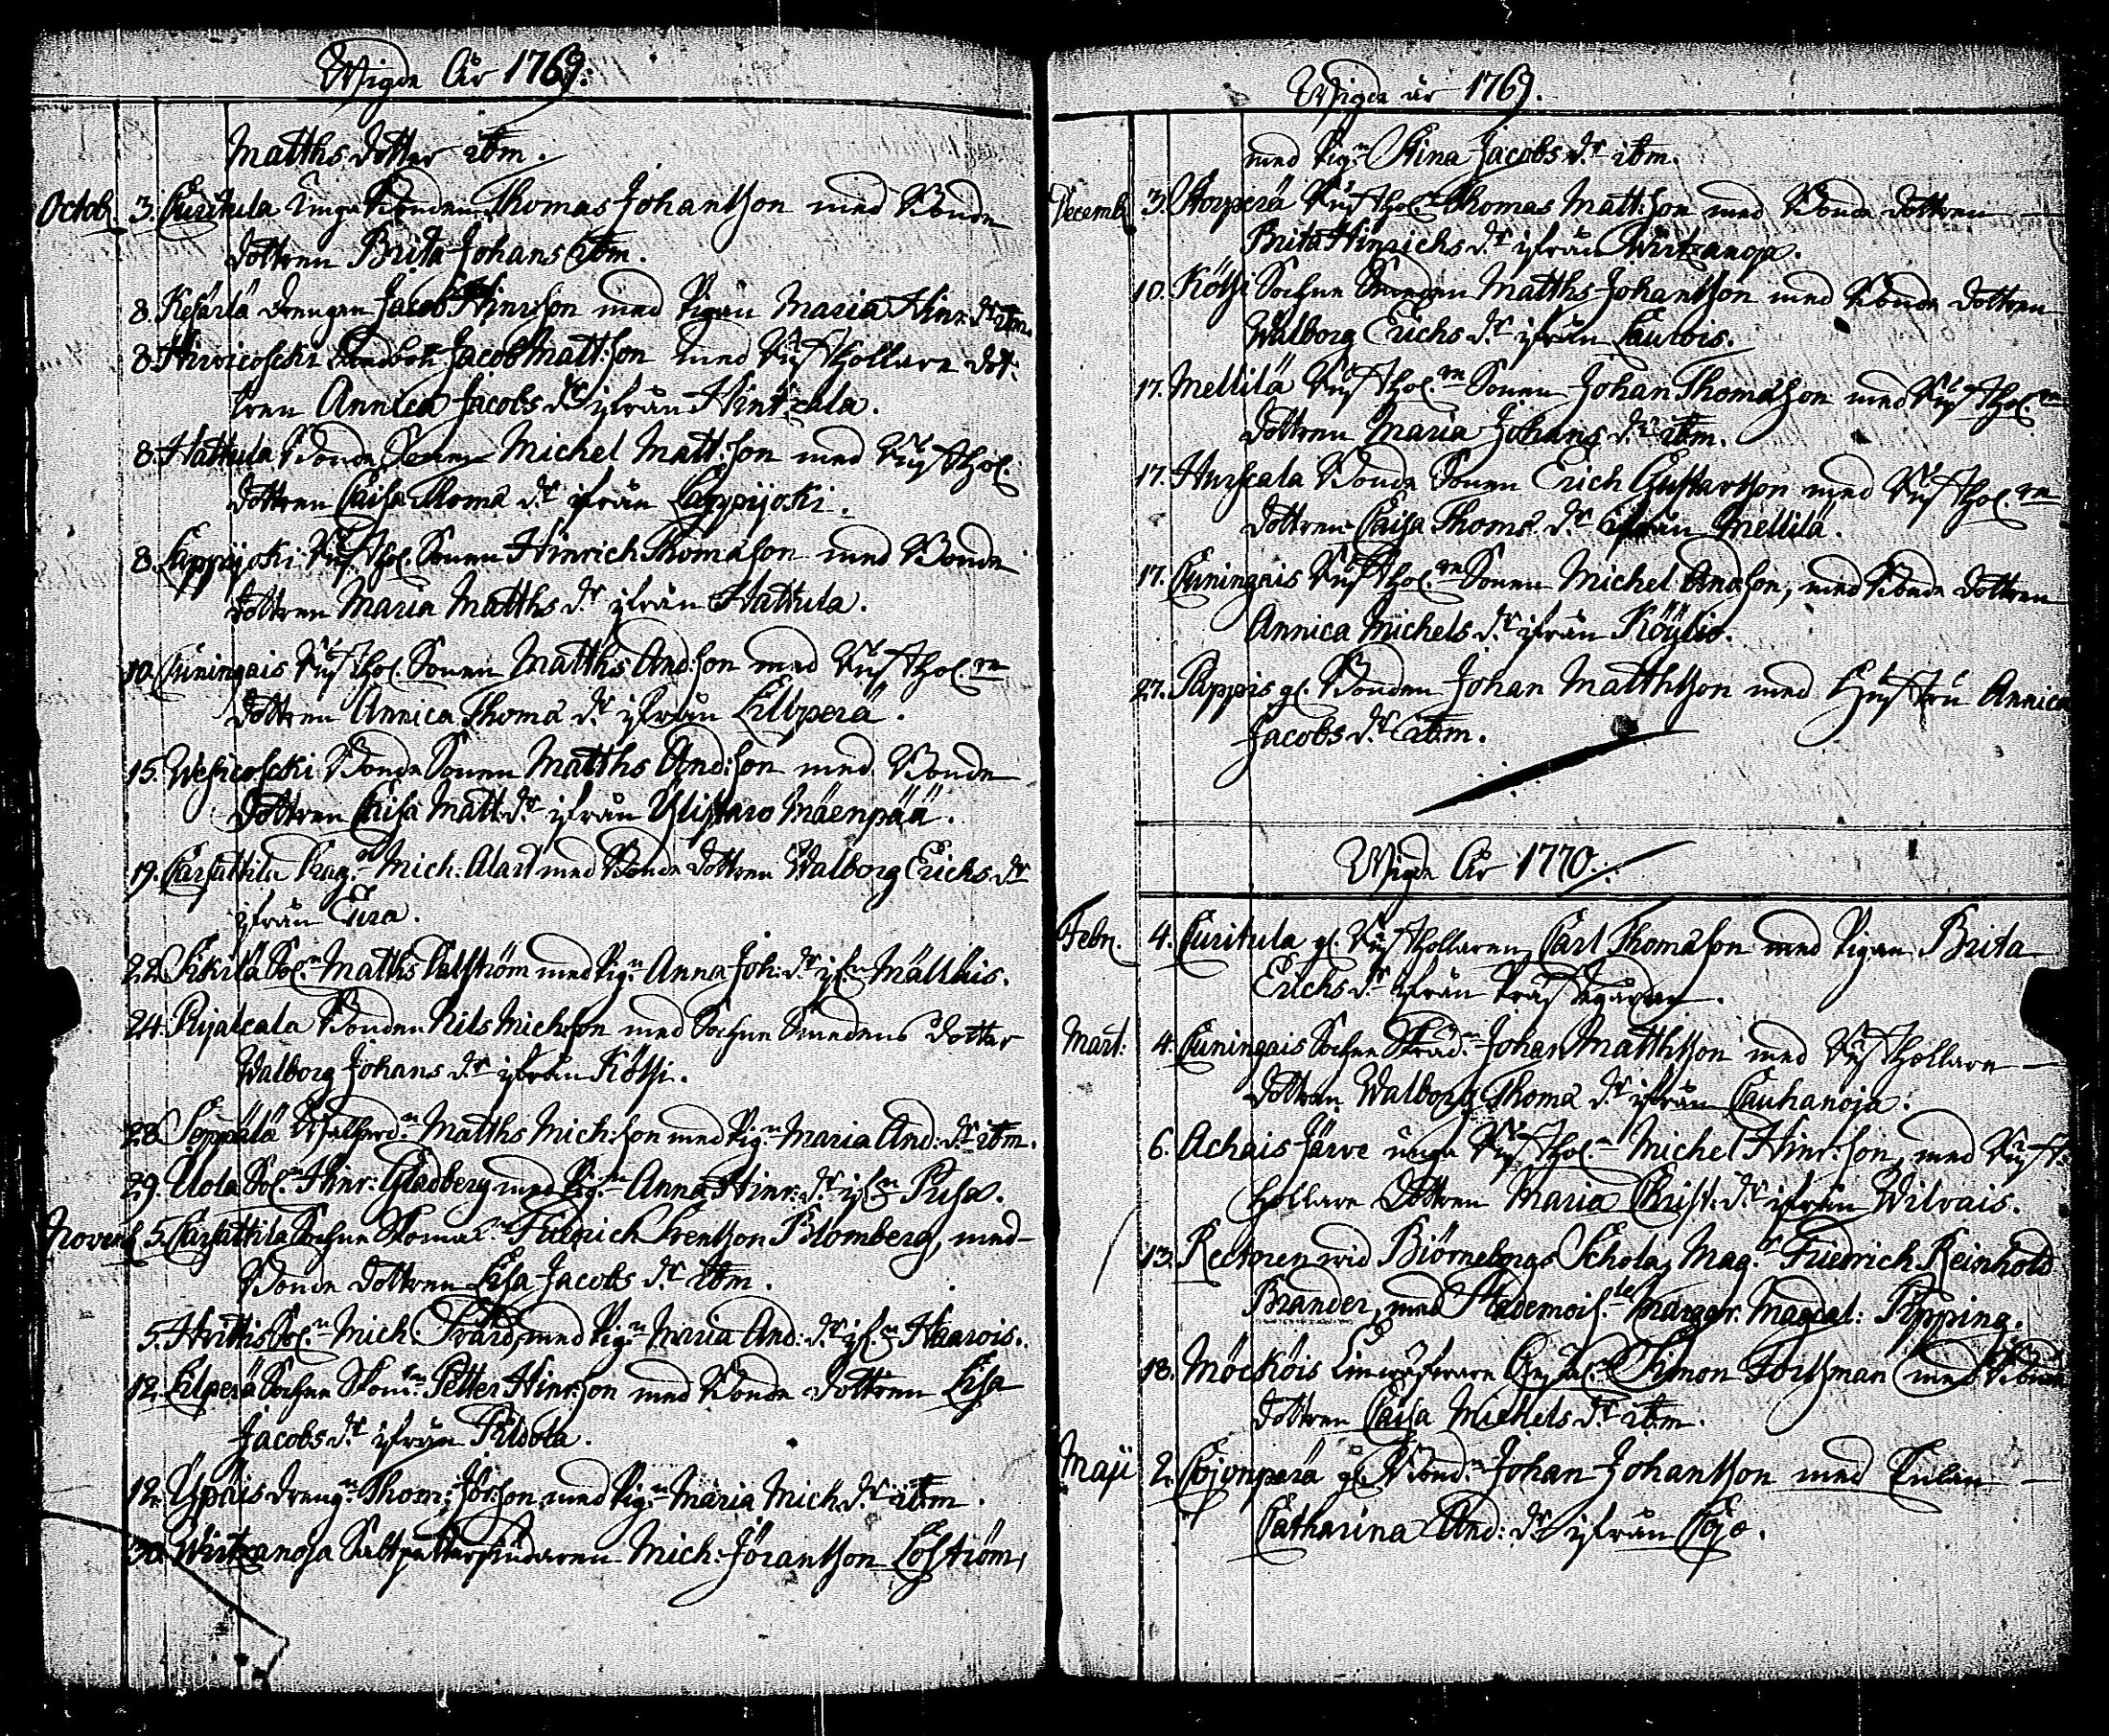 Wigde År 1769.
Matths dotter ibm.
Octob. 3. Curitula Unga Bonden Thomas Johantson med Bonde
dottren Brita Johans ibm.
8. Kesärlä Drengen Jacob Hinrson med Pigan Maria Hinr: dr ibm.
8. Hirvicoscki Jacob Matt:son med Rusthollare dot-
tren Annica Jacobs dr ifrån Hintzala.
8. Hattula Bonde Sonen Michel Matt:son med Rusthol.
dottren Caisa Thoma dr ifrån Lappijoki.
8. Lappijoki Rusthol. Sonen Hinrich Thomason med Bonde
dottren Maria Matths dr ifrån Hattula.
10. Cuningais Rusthol. Sonen Matths And:son med Rusthol.re
dottren Annica Thoma dr ifrån Eilpera.
15. Wesicoscki Bonde Sonen Matths And:son med Bonde
dottren Caisa Matt: dr ifrån Ylistaro Mäenpää.
19. Carsattila Drag. Mich: Alart med Bonde dottren Walborg Erichs dr
ifrån Eura.
22. Sikilä Sol.n Matths Palström med Pig.n Anna Joh: dr if.n Mällais.
24. Rijalcala Bonden Nils Michson med Sochne Smedens dotter
Walborg Johans dr ifrån Köthi.
28. Seppälä Matths Mich:son med Pig.n Maria And: dr ibm.
29. Uola Sol.n Hinr: Gladberg med Pig.n Anna Hinr: dr if.n Pusa.
Novemb. 5. Carsattila Sochne Skomak. Fridrich Frentson Blomberg, med
Bonde dottren Lisa Jacobs dr ibm.
5. Hvittis Sol.n Mich: Svärd, med Pig.n Maria And: dr if.n Haarois.
12. Eilperä Sochne Skom. Petter Hinrson med Bonde dottren Lisa
Jacobs dr ifrån Pildola.
12. Ypäis dreng.n Thom: Jörson, med Pig.n Maria Mich: dr ibm.
30. Wirtzanoja Saltpettersiudaren Mich: Jörantson Löfström,
Wigde år 1769.
med Pig.n Stina Jacobs dr ibm.
Decemb. 3. Horperä Rusthol. Thomas Matt:son med Bonde dottren
Brita Hinrichs dr ifrån Wirtzanoja.
10. Köthi Sochne Smeden Matths Johantson med Bonde dottren
Walborg Erichs dr ifrån Laurois.
17. Mellilä Rusthol.re Sonen Johan Thomason med Rusthol.re
dottren Maria Johans dr ibm.
17. Hurscala Bonde Sonen Erich Gustavson med Rusthol.re
dottren Caisa Thoma dr ifrån Mellilä.
17. Cuningais Rusthol.re Sonen Michel Andson, med Bonde dottren
Annica Michels dr ifrån Köyliö.
27. Pappis gl. Bonden Johan Matthson med Hustru Annica
Jacobs dr ibm.
Wigde År 1770.
Febr. 4. Curitula gl. Rusthollaren Carl Thomason med Pigan Brita
Erichs dr ifrån Prästegården.
Mart: 4. Cuningais Sochne Skräd.n Johan Matthson med Rusthollare
dottren Walborg Thoma dr ifrån Cauhanoja.
6. Achais Järve unga Rusthol.n Michel Hinr:son, med Rust-
hollare dottren Maria Christ: dr ifrån Wilvais.
13. Rectoren wid Biörneborgs Schola, Mag.r Fridrich Reinhold
Brander, med Mademois.le Margr: Magdal: Pipping.
18. Möckois Linwäfvare Gesäl. Simon Forssman med Bonde
dottren Caisa Michels dr ibm.
Maji 2. Cojonperä gl. Bond.n Johan Johantson med Enkan
Catharina And: dr ifrån Cojo.